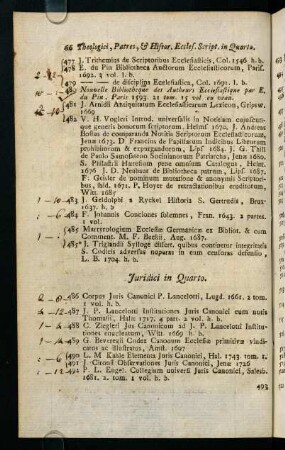 66 Theologici, Patres, & Histor. Eccles. Script. in Quarto.
477 J. Trithemius de Scriptoribus Ecclesiasticis, Col. 1546 h. b.
478 E. du Pin Bibliotheca Auctorum Ecclesiasticorum, Paris.
1692. 3 vol. l. b.
479 —— de disciplina Ecclesiastica, Col. 1691. l. b.
480 Nouvelle Bibliotheque des Auteurs Ecclesiastique par E.
du Pin. Paris 1693. 12 tom. 15 vol. en veau.
481 J. Arnidi Antiquitatum Ecclesiasticarum Lexicon, Gripsw.
1669
482 V. H. Vogleri Introd. universalis in Notitiam cujuscunque
generis bonorum Scriptorum, Helmst. 1670. J. Andreas
Bosius de comparanda Notitia Scriptorum Ecclesiasticorum,
Jenæ 1673. D. Francus de Papistarum Indicibus Librorum
prohibitorum & expurgandorum, Lips. 1684. J. G. Tatii
de Paulo Samosateno Sociniatorum Patriarcha, Jena 1686.
S. Pistaldi Hæresium pene omnium Catalogus, Helmst.
1676. J. D. Neubaur de Bibliotheca patrum, Lips. 1687.
F. Geisler de nominum mutatione & anonymis Scriptoribus,
ibid. 1671. P. Hoyer de retractationibus eruditorum,
Witt. 1687
483 J. Geldolphi a Ryckel Historia S. Gertrudis, Brux.
1637. h. b.
484 F. Johannis Conciones solemnes, Fran. 1643. 2 partes.
1 vol.
485 Martyrologium Ecclesiæ Germanicæ ex Bibliot. & cum
Comment. M. F. Bechii, Aug. 1687.
485* J. Triglandi Sylloge dissert. quibus continetur integritas
S. Codicis adversus nuperas in eum censuras defensio,
L. B. 1704. h. b.
Juridici in Quarto.
2 - 0 - 486 Corpus Juris Canonici P. Lancelotti, Lugd. 1661. 2 tom.
1 vol. h. b.
- 12 - 487 J. P. Lancelotti Institutiones Juris Canonici cum notis
Thomasii, Halæ 1717. 4 part. 2 vol. h. b.
488 C. Ziegleri Jus Canonicum ad J. P. Lancelotti Institutiones
enucleatum, Witt. 1669 h. b.
489 G. Beveregii Codex Canonum Ecclesiæ primitivæ vindicatus
ac illustratus, Amst. 1697
490 L. M Kahle Elementa Juris Canonici, Hal. 1743. tom. 1.
491 J. Ottonis Observationes Juris Canonici, Jenæ 1726
492 P. L. Engel. Collegium universi Juris Canonici, Salisb.
1681. 2. tom. 1 vol. h. b.
493